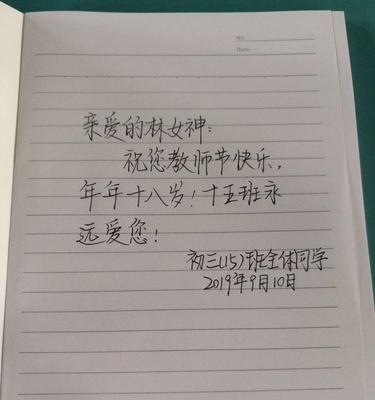 No
Date
亲爱的林女神：
祝您教师节快乐，
年年十八岁！十五班永
远爱您！
初三(15)班全体同学
2019年9月10日